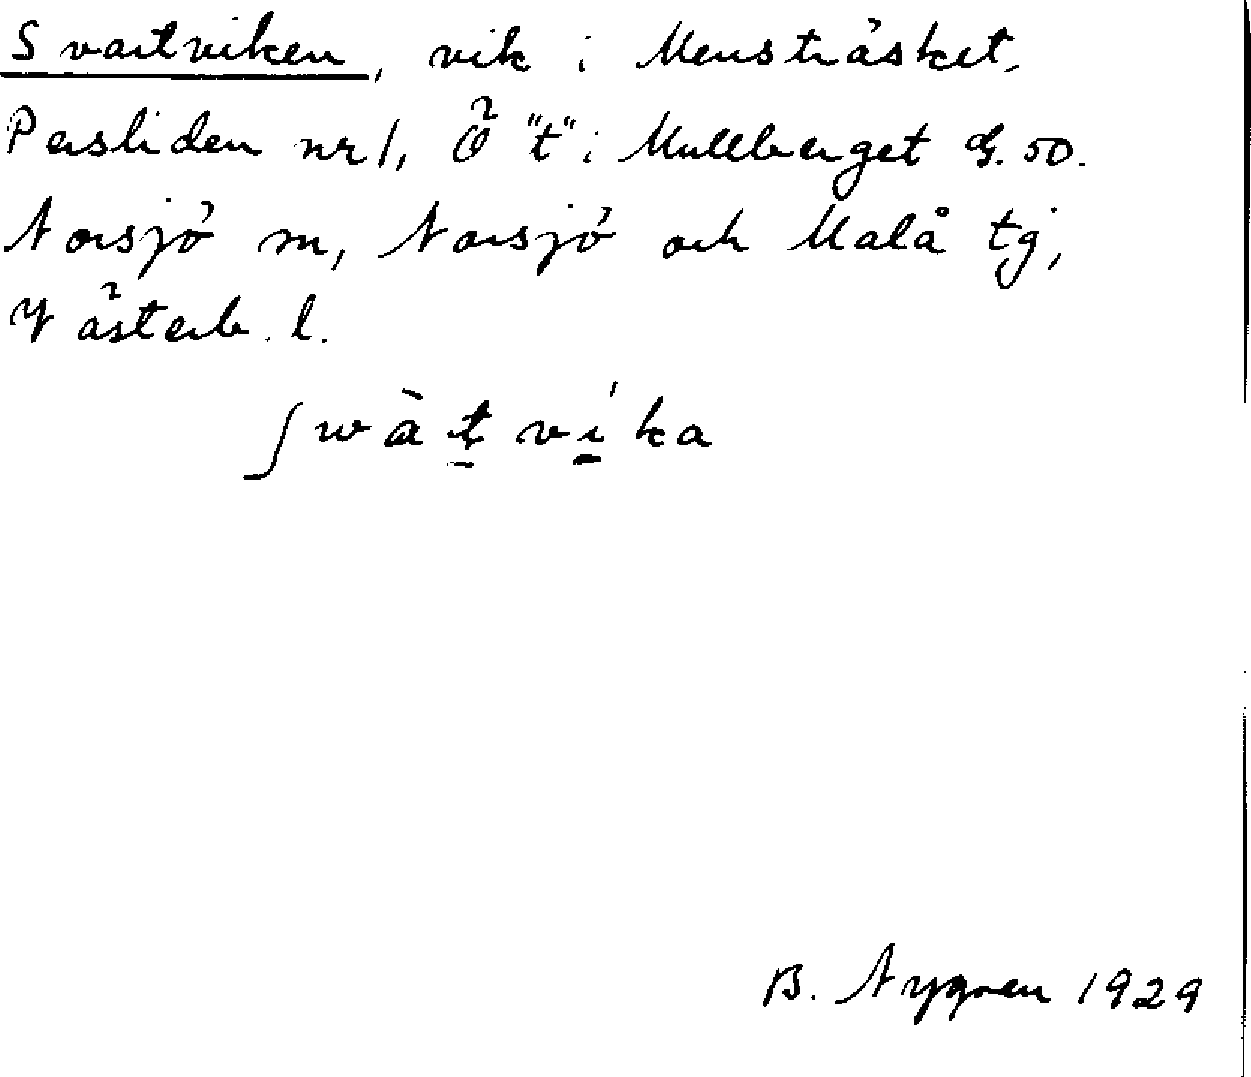 Svartviken, vik i Mensträsket,
Persliden nr 1, Ö "t" i Mullberget G. 50.
Norsjö m, Norsjö och Malå tg,
Västerb. l.
ʃwàt̠ví̠ka
B. Nygren 1929